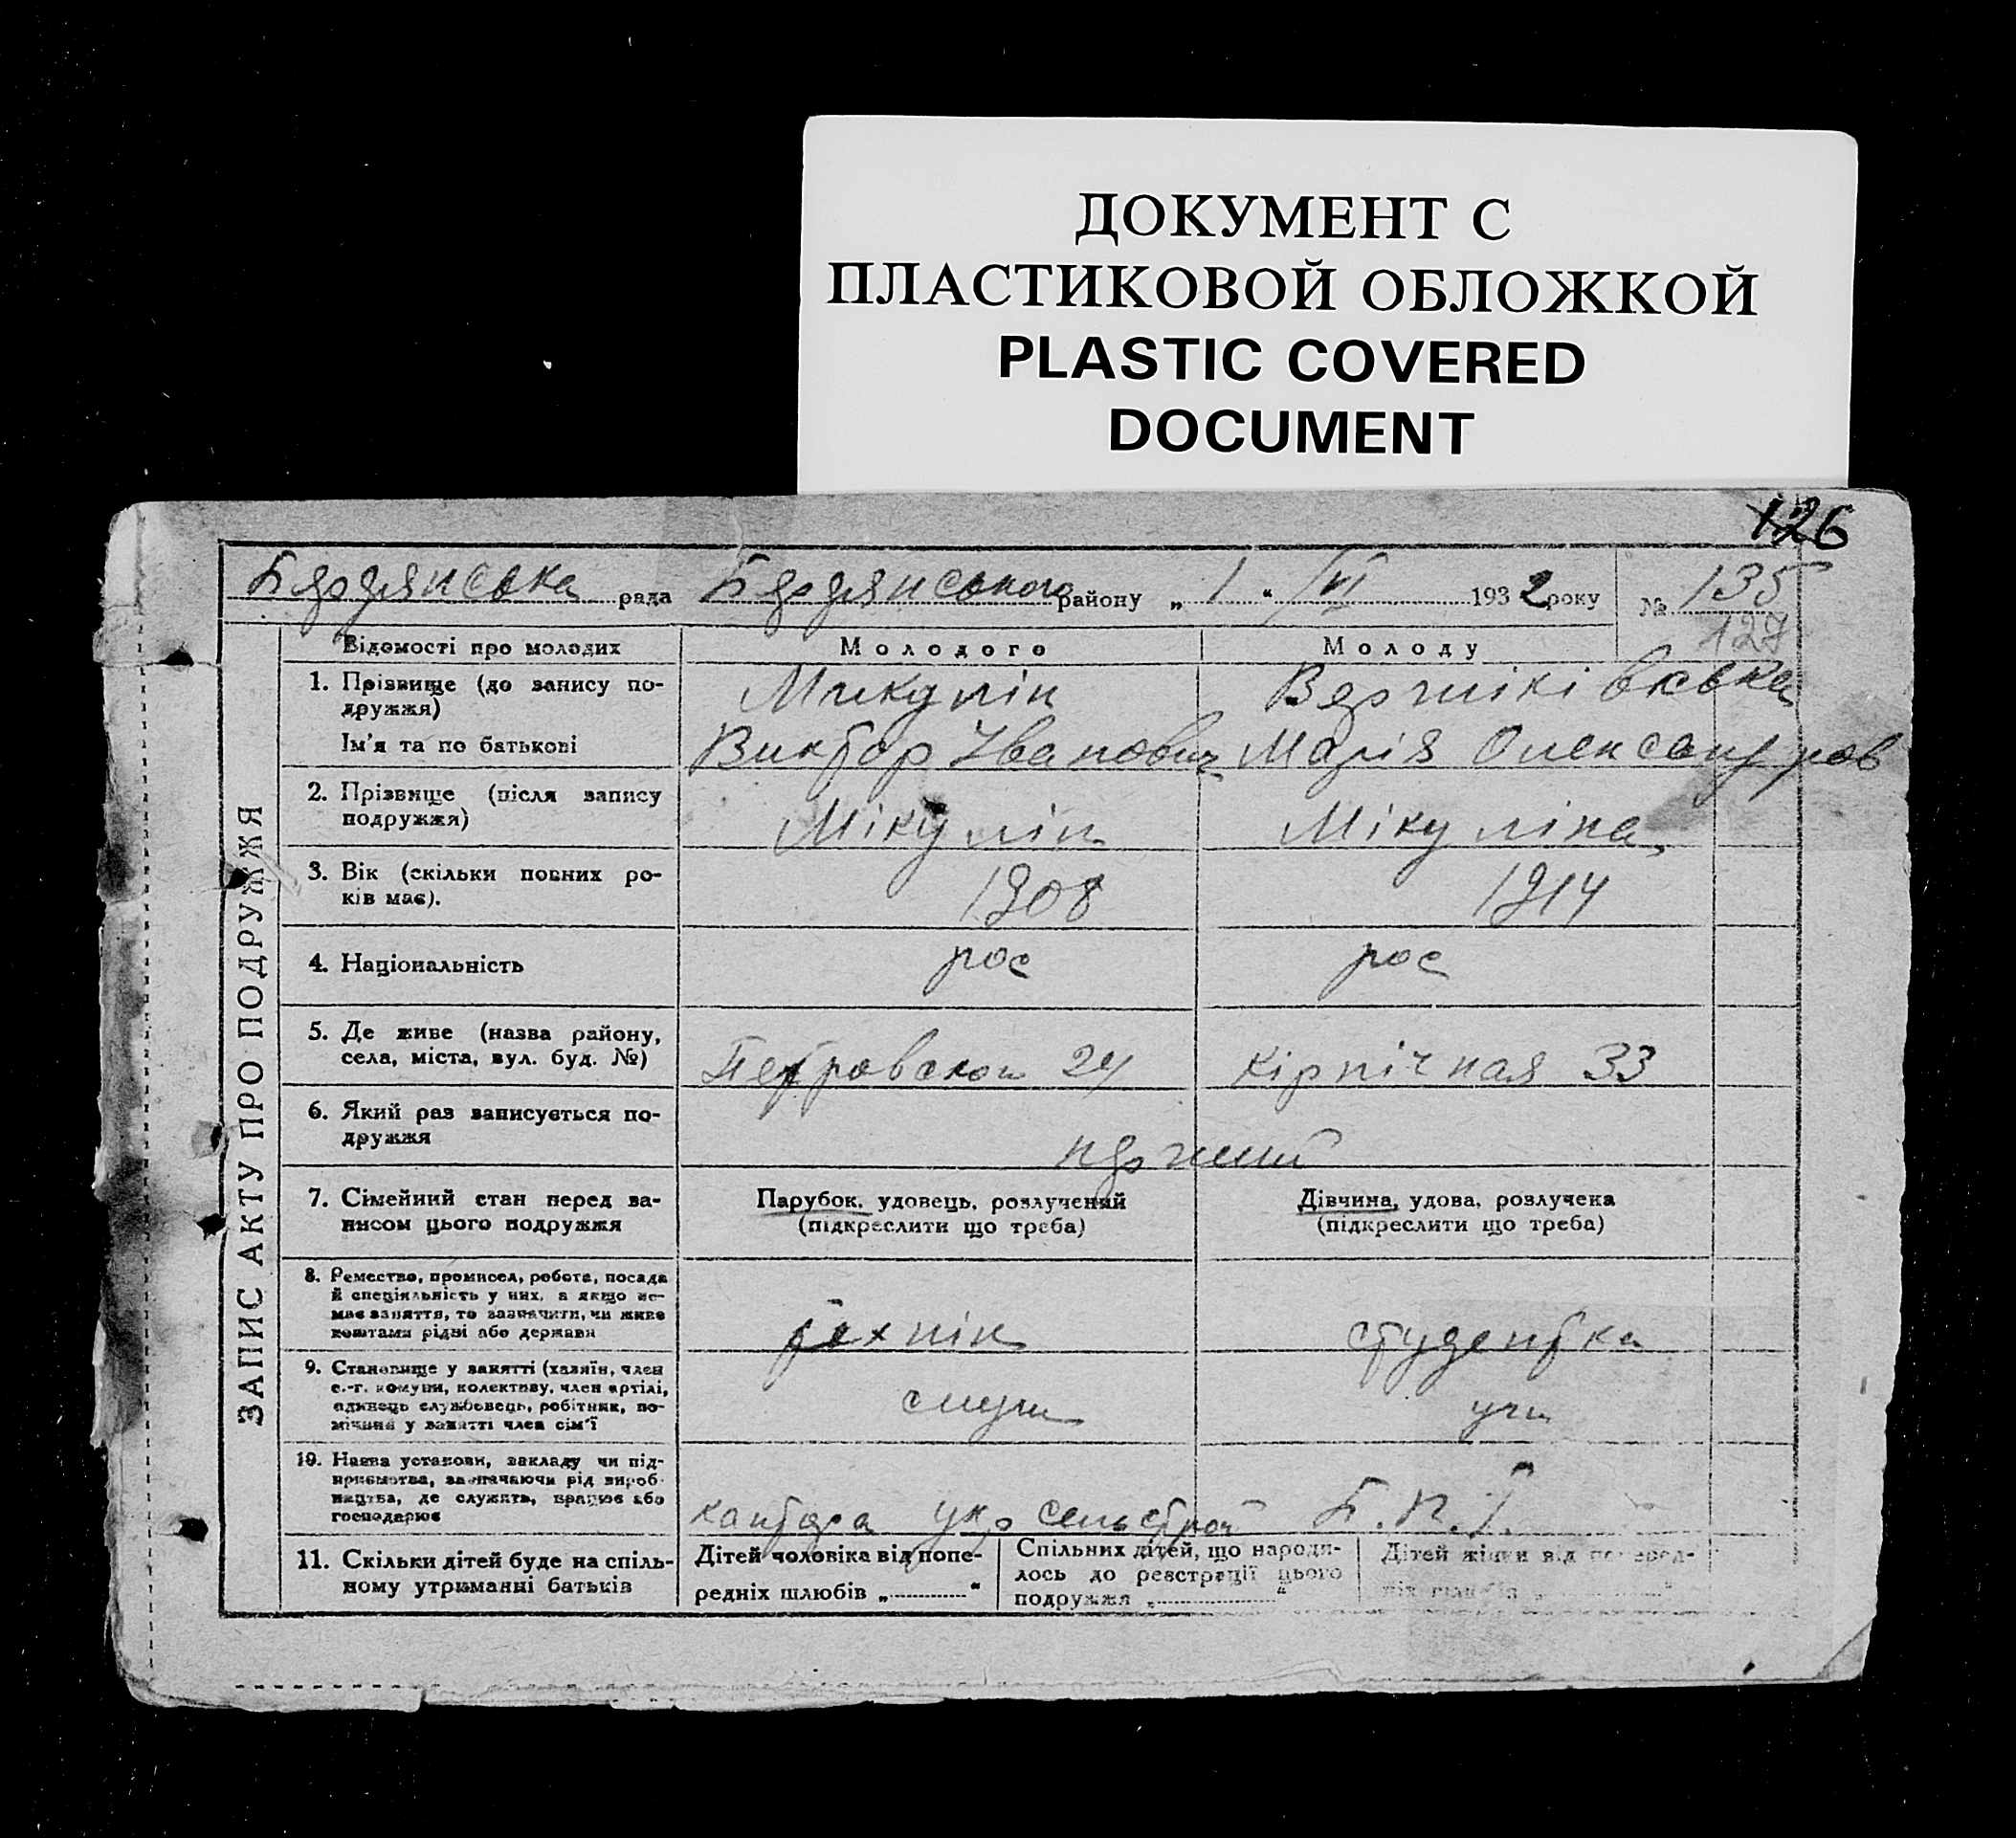 ДОКУМЕНТ С
ПЛАСТИКОВОЙ ОБЛОЖКОЙ
PLASTIC COVERED
DOCUMENT
126
Бердянська рада Бердянського району „1“ VI 1932 року № 135
127
ЗАПИС АКТУ ПРО ПОДРУЖЖЯ
Відомості про молодих Молодого Молоду
1. Прізвище (до запису по- Микулін
дружжя)
Ім'я та по батькові Виктор Іванович Марія Олександров
2. Прізвище (після запису Мікулін Мікуліна
подружжя)
3. Вік (скільки повних ро- 1908 1914
ків має).
4. Національність рос рос
5. Де живе (назва району, Петровског 24 Кірпічная 33
села, міста, вул. буд. №)
6. Який раз записується по-
дружжя перший
7. Сімейний стан перед за- Парубок, удовець, розлучений Дівчина, удова, розлучена
писом цього подружжя (підкреслити що треба) (підкреслити що треба)
8. Ремество, промисел, робота, посада
й спеціяльність у них, а якщо не-
має заняття, то зазначити, чи живе
коштами рідні або держави технік студентка
9. Становище у занятті (хазяїн, член
с.-г. комуни, колективу, член артілі,
одинець службовець, робітник, по- служ учн
мічний у занятті член сім'ї
10. Назва установи, закладу чи під-
приємства, зазначаючи рід вироб-
ництва, де служить, працює або
господарює контора укрсельстрой Б.П.Т.
11. Скільки дітей буде на спіль- Дітей чоловіка від попе- Спільних дітей, що народи- Дітей жінки від поперед-
ному утриманні батьків редніх шлюбів „ “ лось до реєстрації цього ніх шлюбів „ “
подружжя „ “